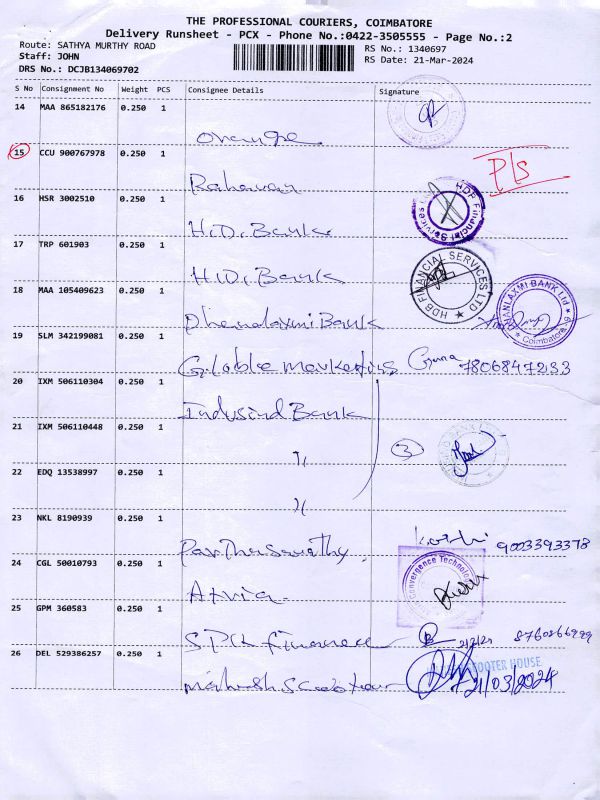 THE PROFESSIONAL COURIERS, COIMBATORE
Delivery Runsheet - PCX - Phone No.:0422-3505555 - Page No.:2
Route: SATHYA MURTHY ROAD RS No.: 1340697
Staff: JOHN RS Date: 21-Mar-2024
DRS No.: DCJB134069702
S No Consignment No Weight PCS Consignee Details Signature
14 MAA 865182176 0.250 1
orange
15 CCU 900767978 0.250 1 P/S
16 HSR 3002510 0.250 1
H.D. Bank HDF Financial Services
17 TRP 601903 0.250 1
H.D. Bank HDB FINANCIAL SERVICES LTD
18 MAA 105409623 0.250 1
Dhanalaxmi Bank LAXMI BANK Ltd Coimbatore
19 SLM 342199081 0.250 1
Globle Marketing Guna 7806847233
20 IXM 506110304 0.250 1
Indusind Bank
21 IXM 506110448 0.250 1
" 3
22 EDQ 13538997 0.250 1
"
23 NKL 8190939 0.250 1
Parthasarathy 9003393378
24 CGL 50010793 0.250 1
Convergence Technolog
25 GPM 360583 0.250 1
SPK finance
26 DEL 529386257 0.250 1
SCOOTER HOUSE
21/03/2024